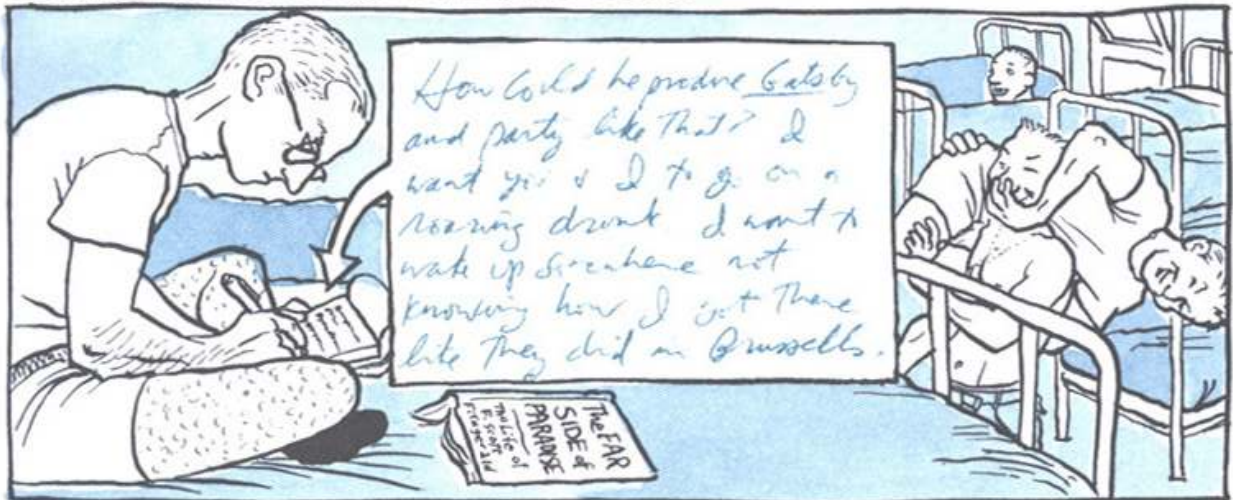 How could he produce Gatsby
and party like that? I
want you & I to go on a
roaring drunk. I want to
wake up somewhere not
knowing how I got there
like they did in Brussells.
The FAR
SIDE of
PARADISE
The Life of
F. Scott
Fitzgerald